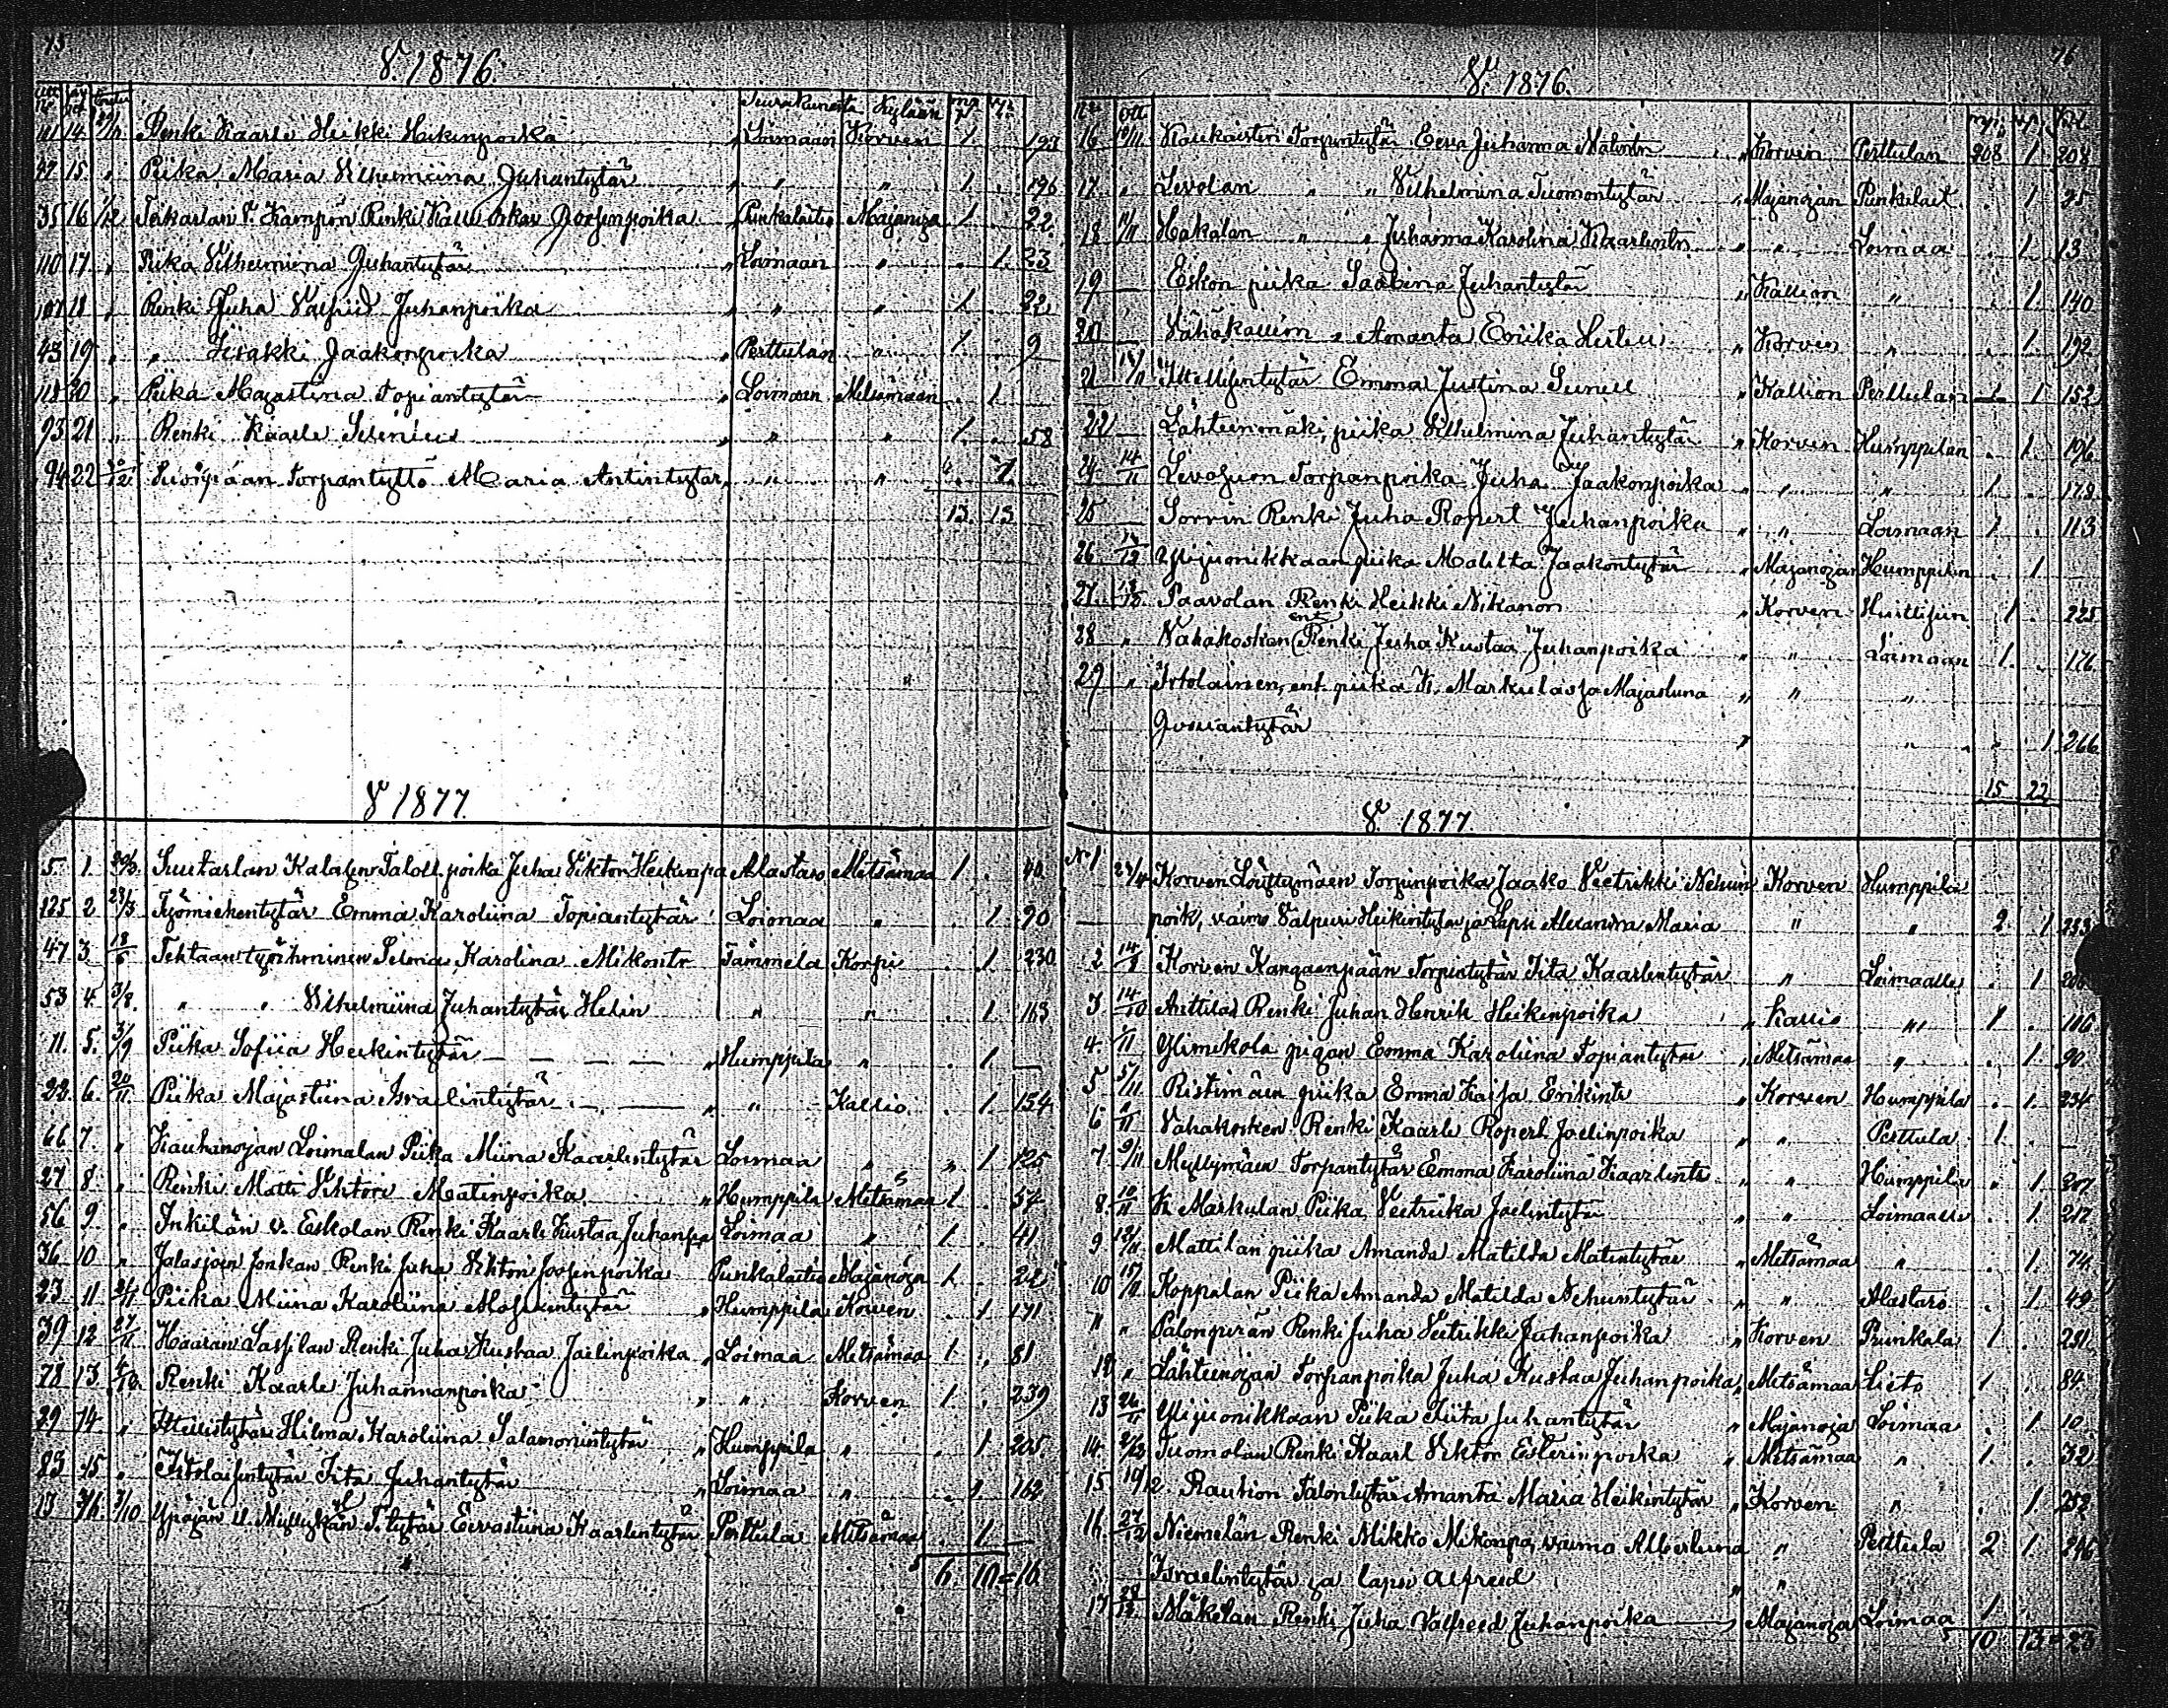 75
V. 1876.
Seurakunasta Kylään mp. vp.
111 14. Renki Kaarle Heikki Heikinpoika " Loimaan Korven 1. 193
47 15. " Piika Maria Vilhelmiina Juhantytär " " " 1. 196
35 16 1/12 Renki Kalle Oskar Joosepinpoika Punkalaitio Majanoja 1 22.
110 17 " Piika Vilhelmiina Juhantytär " Loimaan " 1. 23
107 18 " Renki Juha Valfrid Juhanpoika " " " 1 22
43 19 " " Iisakki Jaakonpoika " Perttulan " 1. 9
118 20 " Piika Majastiina Topiantytär " Loimaan Metsämaan 1
93 21 " Renki Kaarle Selenius " " " 1. 58
94 22 Torpantyttö Maria Antintytär " " " 1.
13. 13
V 1877.
5. 1. Juha Viktor Heikinpa Alastaro Metsämaa 1 40
125 2 23/3 Työmiehentytär Emma Karoliina Topiantytär Loimaa " 1 90
47 3. 18/6 Tehtaan työihminen Selma Karolina Mikontr Tammela Korpi 1. 230
53 4. 3/8. " " Vilhelmiina Juhantytär Helin " " 1. 163
11. 5. 3/9 Piika Sofiia Heikintytär " Humppila " 1
22. 6. 20/11 Piika Majastiina Israelintytär " " Kallio. 1. 154
66 7. " Kauhanojan Loimalan Piika Miina Kaarlentytär Loimaa " 1 125
27 8 " Renki Matti Vihtori Matinpoika " Humppila Metsämaa 1 57
56 9. " Inkilän v. Eskolan Renki Kaarle Kustaa Juhanpa Loimaa " 1. 41
36 10 " Jalasjoen Jonkan Renki Juha Vihtori Joosepinpoika Punkalaitio Majanoja 1. 22
23 11 Piika Miina Karoliina " Humppila Korven 1 171
39 12 27/11 Haaran Lassilan Renki Juha Kustaa Joelinpoika " Loimaa Metsämaa 1. 81
78 13 4/12. Renki Kaarle Juhannanpoika " " Korven 1. 239
29 14. " Hilma Karoliina Salamonintytär " Humppila " 1 205.
83 15 " Itsolaisentytär Iita Juhantytär " Loimaa " 1 162
13 Ypäjän T. tytär Eevastiina Kaarlentytär Perttula Metsämaa 1
6. 10 = 16
76
V. 1876.
16 Torpantytär Eeva Juhanna " Korven Perttulan 208 1. 208
17. " Levolan " " Vilhelmina Tuomontytär " Majanojan Punkalait. 1 75
18 Hakalan " " Juhanna Karolina Kaarlentr " " Loimaa 1. 13
19 Eskon piika Saabina Juhantytär " Kallion " 1. 140
20 Vähäkallion " Amanta Eerika " Korven " 1. 192
21 Emma Justina " Kallion Perttulan 1 152
22 Lähteenmäki, piika Vilhelmina Juhantytär " Korven Humppilan 1. 196
24 14/11 Levosuon Torpanpoika Juha Jaakonpoika " " " 1 178
25 Sorrin Renki Juha Ropert Juhanpoika " " Loimaan 1 113
26 Ylijuonikkaan piika Malilta Jaakontytär " Majanojan Humppilan 1
27. Paavolan Renki Heikki Nikanor " Korven Huittisiin 1. 225
28 " Vahakosken ent Renki Juha Kustaa Juhanpoika " " Loimaan 1. 176
29 " Irtolainen, ent. piika K. Markula Majastiina " " "
Joosiantytär " " " 1 266
15 22
V. 1877.
No 1 Korven Löyttymäen Torpinpoika Jaako Veetrikki Nehem. Korven Humppila
poik, vaimo Valpuri Heikintytär ja Lapsi Alexandra Maria " " 2. 1 233
2 Korven Kangaanpään Torpintytär Iita Kaarlentytär " Loimaalle 1
3 14/10 Anttilas Renki Juhan Henrik Heikinpoika " Kallio " 1 116
4. Ylimikola pigan Emma Karoliina Topiantytär " Metsämaa " 1. 90.
5 5/11 Ristimäen piika Emma Kaisa Erikintr " Korven Humppila 1. 234
6 Vahakosken Renki Kaarle Ropert Joelinpoika " " Perttula 1.
7 9/11 Myllymäen Torpantytär Emma Karoliina Kaarlentr " " Humppila 1. 207
8. 10/11 K. Markulan Piika Veetriika Joelintytär " " Loimaalle 1. 217
9 12/11 Mattilan piika Amanda Matilda Matintytär " Metsämaa " 1. 74
10 15/11 Koppalan Piika Amanda Matilda Nehemtytär " " Alastaro 1. 49
11 " Palonperän Renki Juha Veetrikki Juhanpoika " Korven Punkala 1. 251
12 " Lähteenojan Torpanpoika Juha Kustaa Juhanpoika " Metsämaa Lieto 1 84
13 26/11 Ylijuonikkaan Piika Iita Juhantytär " Majanoja Loimaa 1. 10
14. Tuomolan Renki Kaarl Viktor Esterinpoika " Metsämaa " 1. 32
15. 19/12. Raution Talontytär Amanta Maria Heikintytär " Korven " 1 252
16 27/12 Niemelän Renki Mikko Mikonpa, vaimo Albertiina " Perttula 2 1. 246
Israelintytär ja lapsi Alfreed " "
17 28/12 Mäkelän Renki Juha Valfreed Juhanpoika " Majanoja Loimaa 1.
10 13 = 23